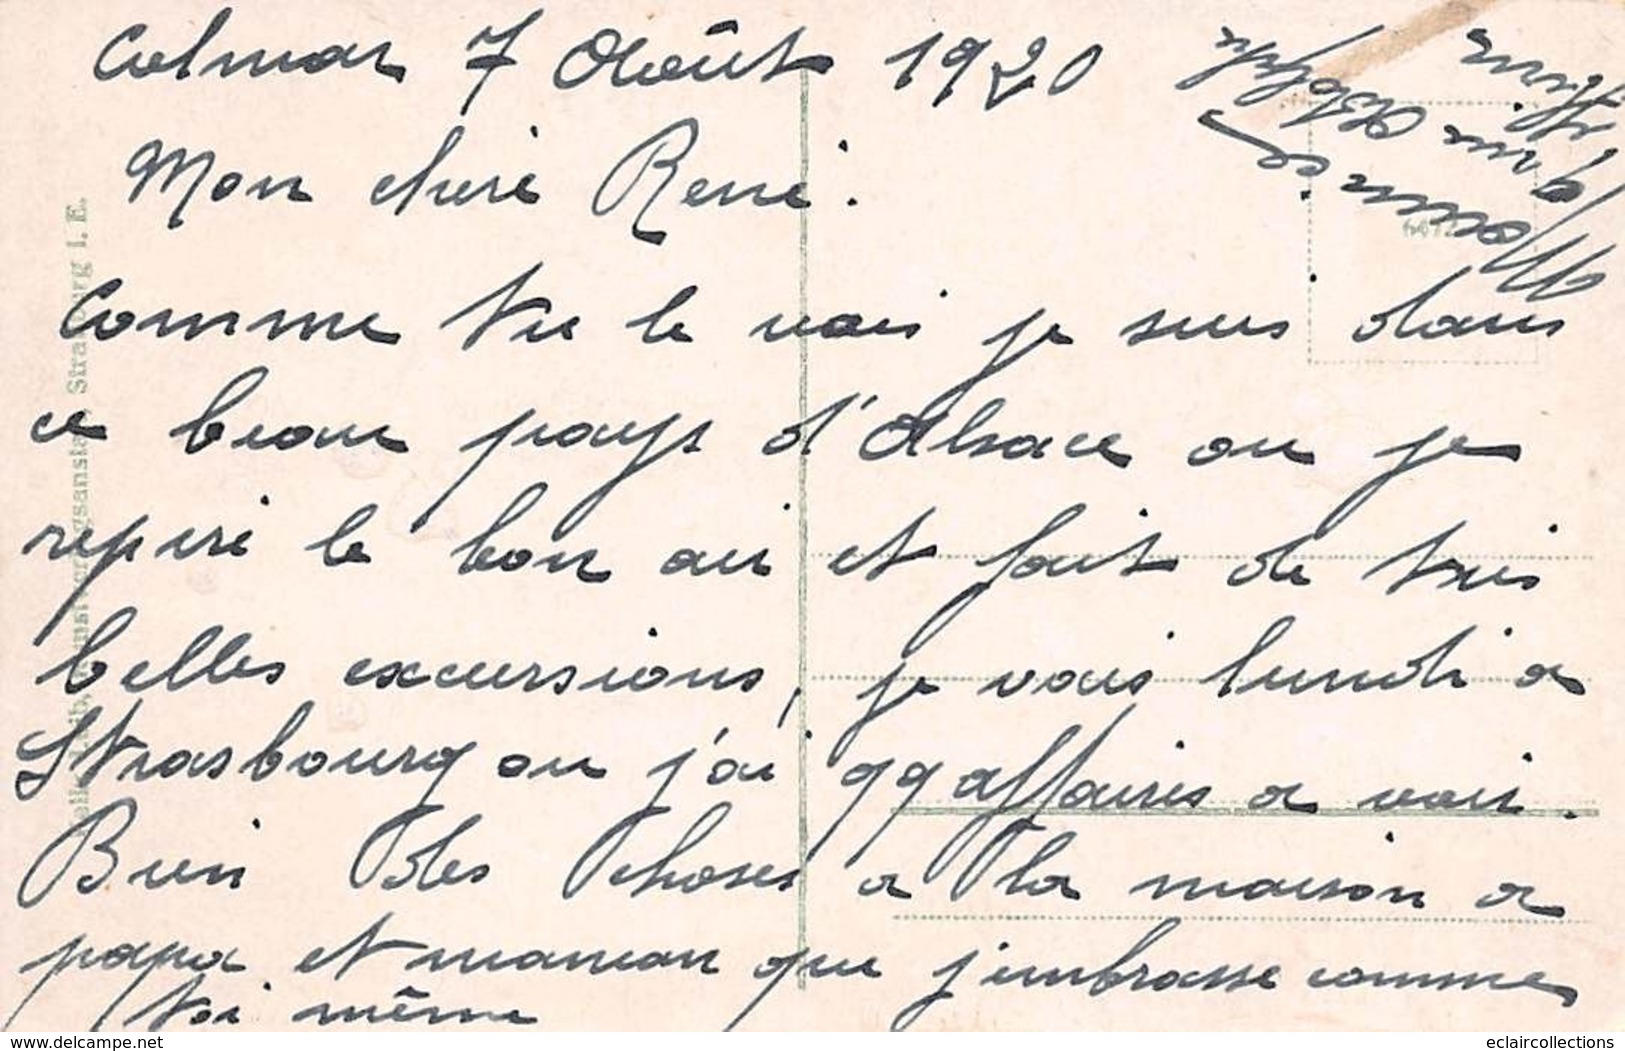 Colmar 7 Août 1920
Mon cheri René.
Comme tu le vois je suis dans
ce beau pays d'Alsace ou je
repire le bon air et fait de tres
belles excursions, je vais lundi a
Strasbourg ou j'ai qq affaires a voir.
Bien des choses a la maison a
papa et maman que j'embrasse comme
toi même
Strassburg I. E.
eclaircollections